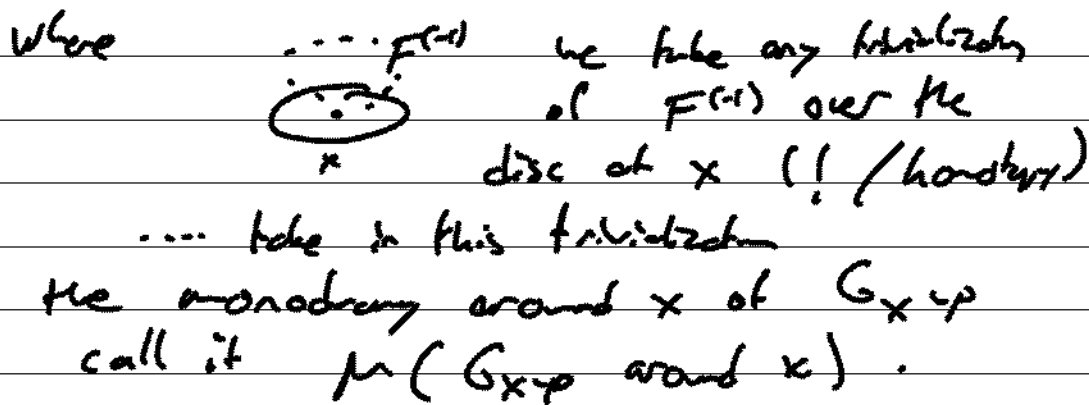 Where .... F^(-1) we take any trivialization
of F^(-1) over the
x disc at x (! / homotopy)
.... take in this trivialization
the monodromy around x of G_x→p
call it μ(G_x→p around x).